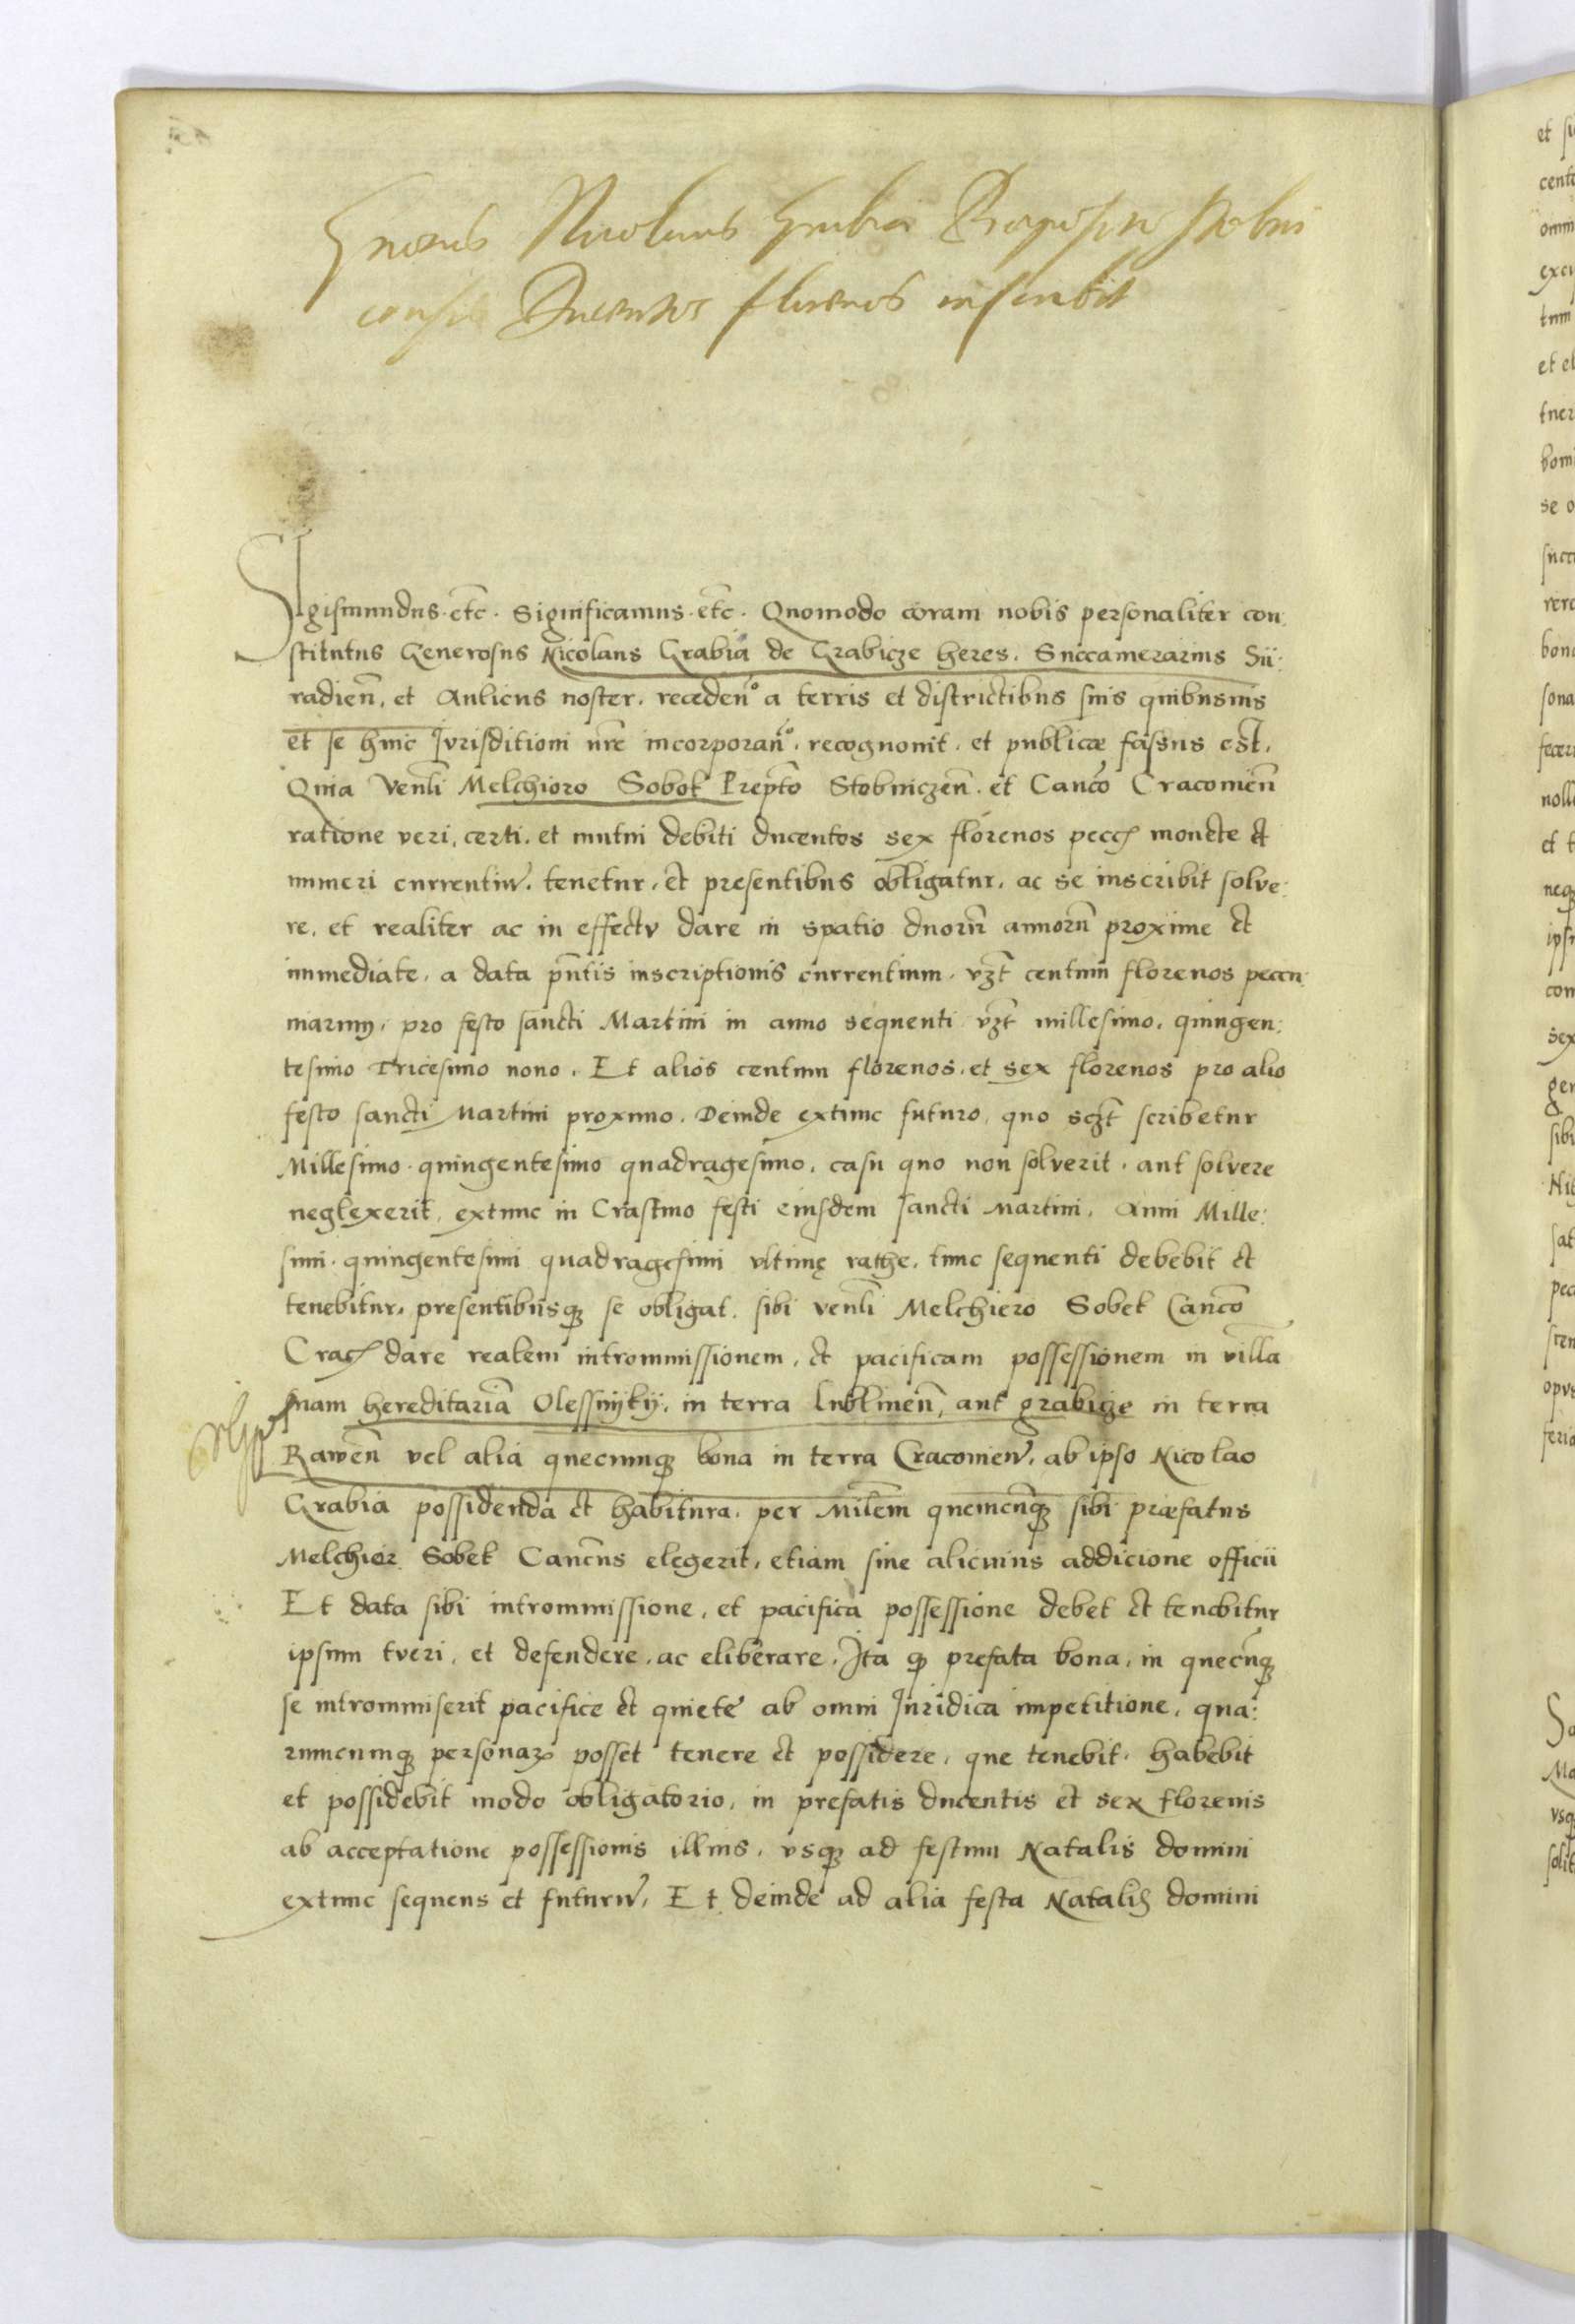 Gnosus Nicolaus Grabia Preposito Stobni
Ducentos florenos inscribit
Sigismundus. etc. Significamus. etc. Quomodo coram nobis personaliter con:
stitutus Generosus Nicolaus Grabia de Grabicze heres. Succamerarius Sii:
radien̄, et Aulicus noster. receden̄° a terris et districtibus suis quibusuis
et se huic Jvrisditioni nr̄e incorporan̄°. recognouit. et publicæ fassus est.
Quia Venli Melchioro Sobok Prep̄to Stobniczen̄. et Canc̄o Cracouien̄
ratione veri, certi. et mutui debiti ducentos sex florenos pecc monete et
numeri currentiu᷑. tenetur, et presentibus obligatur, ac se inscribit solve:
re, et realiter ac in effectv dare in spatio duoru̅ annoru̅ proxime et
immediate, a data pn̄tis inscriptionis currentium. vzt centum florenos pecun
mariny, pro festo sancti Martini in anno sequenti vzt millesimo, quingen:
tesimo Tricesimo nono. Et alios centum florenos, et sex florenos pro alio
festo sancti Martini proximo. Deinde extunc futuro, quo sczt scribetur
Millesimo. quingentesimo quadragesimo, casu quo non solverit. aut solvere
neglexerit, extunc in Crastino festi eiusdem sancti Martini, Anni Mille:
simi. quingentesimi quadragesimi vltimę rathe, tunc sequenti debebit et
tenebitur, presentibusqȝ se obligat. sibi venli Melchioro Sobek Canc̄o
Crac dare realem intrommissionem, et pacificam possessionem in villa
suam hereditaria̅ Olessnyky, in terra Lublinen̄, aut grabicze in terra
Rawen̄ vel alia quecunqȝ bona in terra Cracouien̄, ab ipso Nicolao
Grabia possidenda et habitura. per Milem quemcu̅qȝ sibi præfatus
Melchior Sobek Canc̄us elegerit, etiam sine alicuius addicione officii
Et data sibi intrommissione, et pacifica possessione debet et tenebitur
ipsum tveri, et defendere, ac eliberare. Ita qȝ prefata bona, in quecu̅qȝ
se intrommiserit pacifice et quiete ab omni Juridica impetitione, qua:
rumcumqȝ personaꝝ posset tenere et possidere, que tenebit. habebit
et possidebit modo obligatorio, in prefatis ducentis et sex florenis
ab acceptatione possessionis illius, vsqȝ ad festum Natalis domini
extunc sequens et futuru᷑, Et deinde ad alia festa Natalis domini